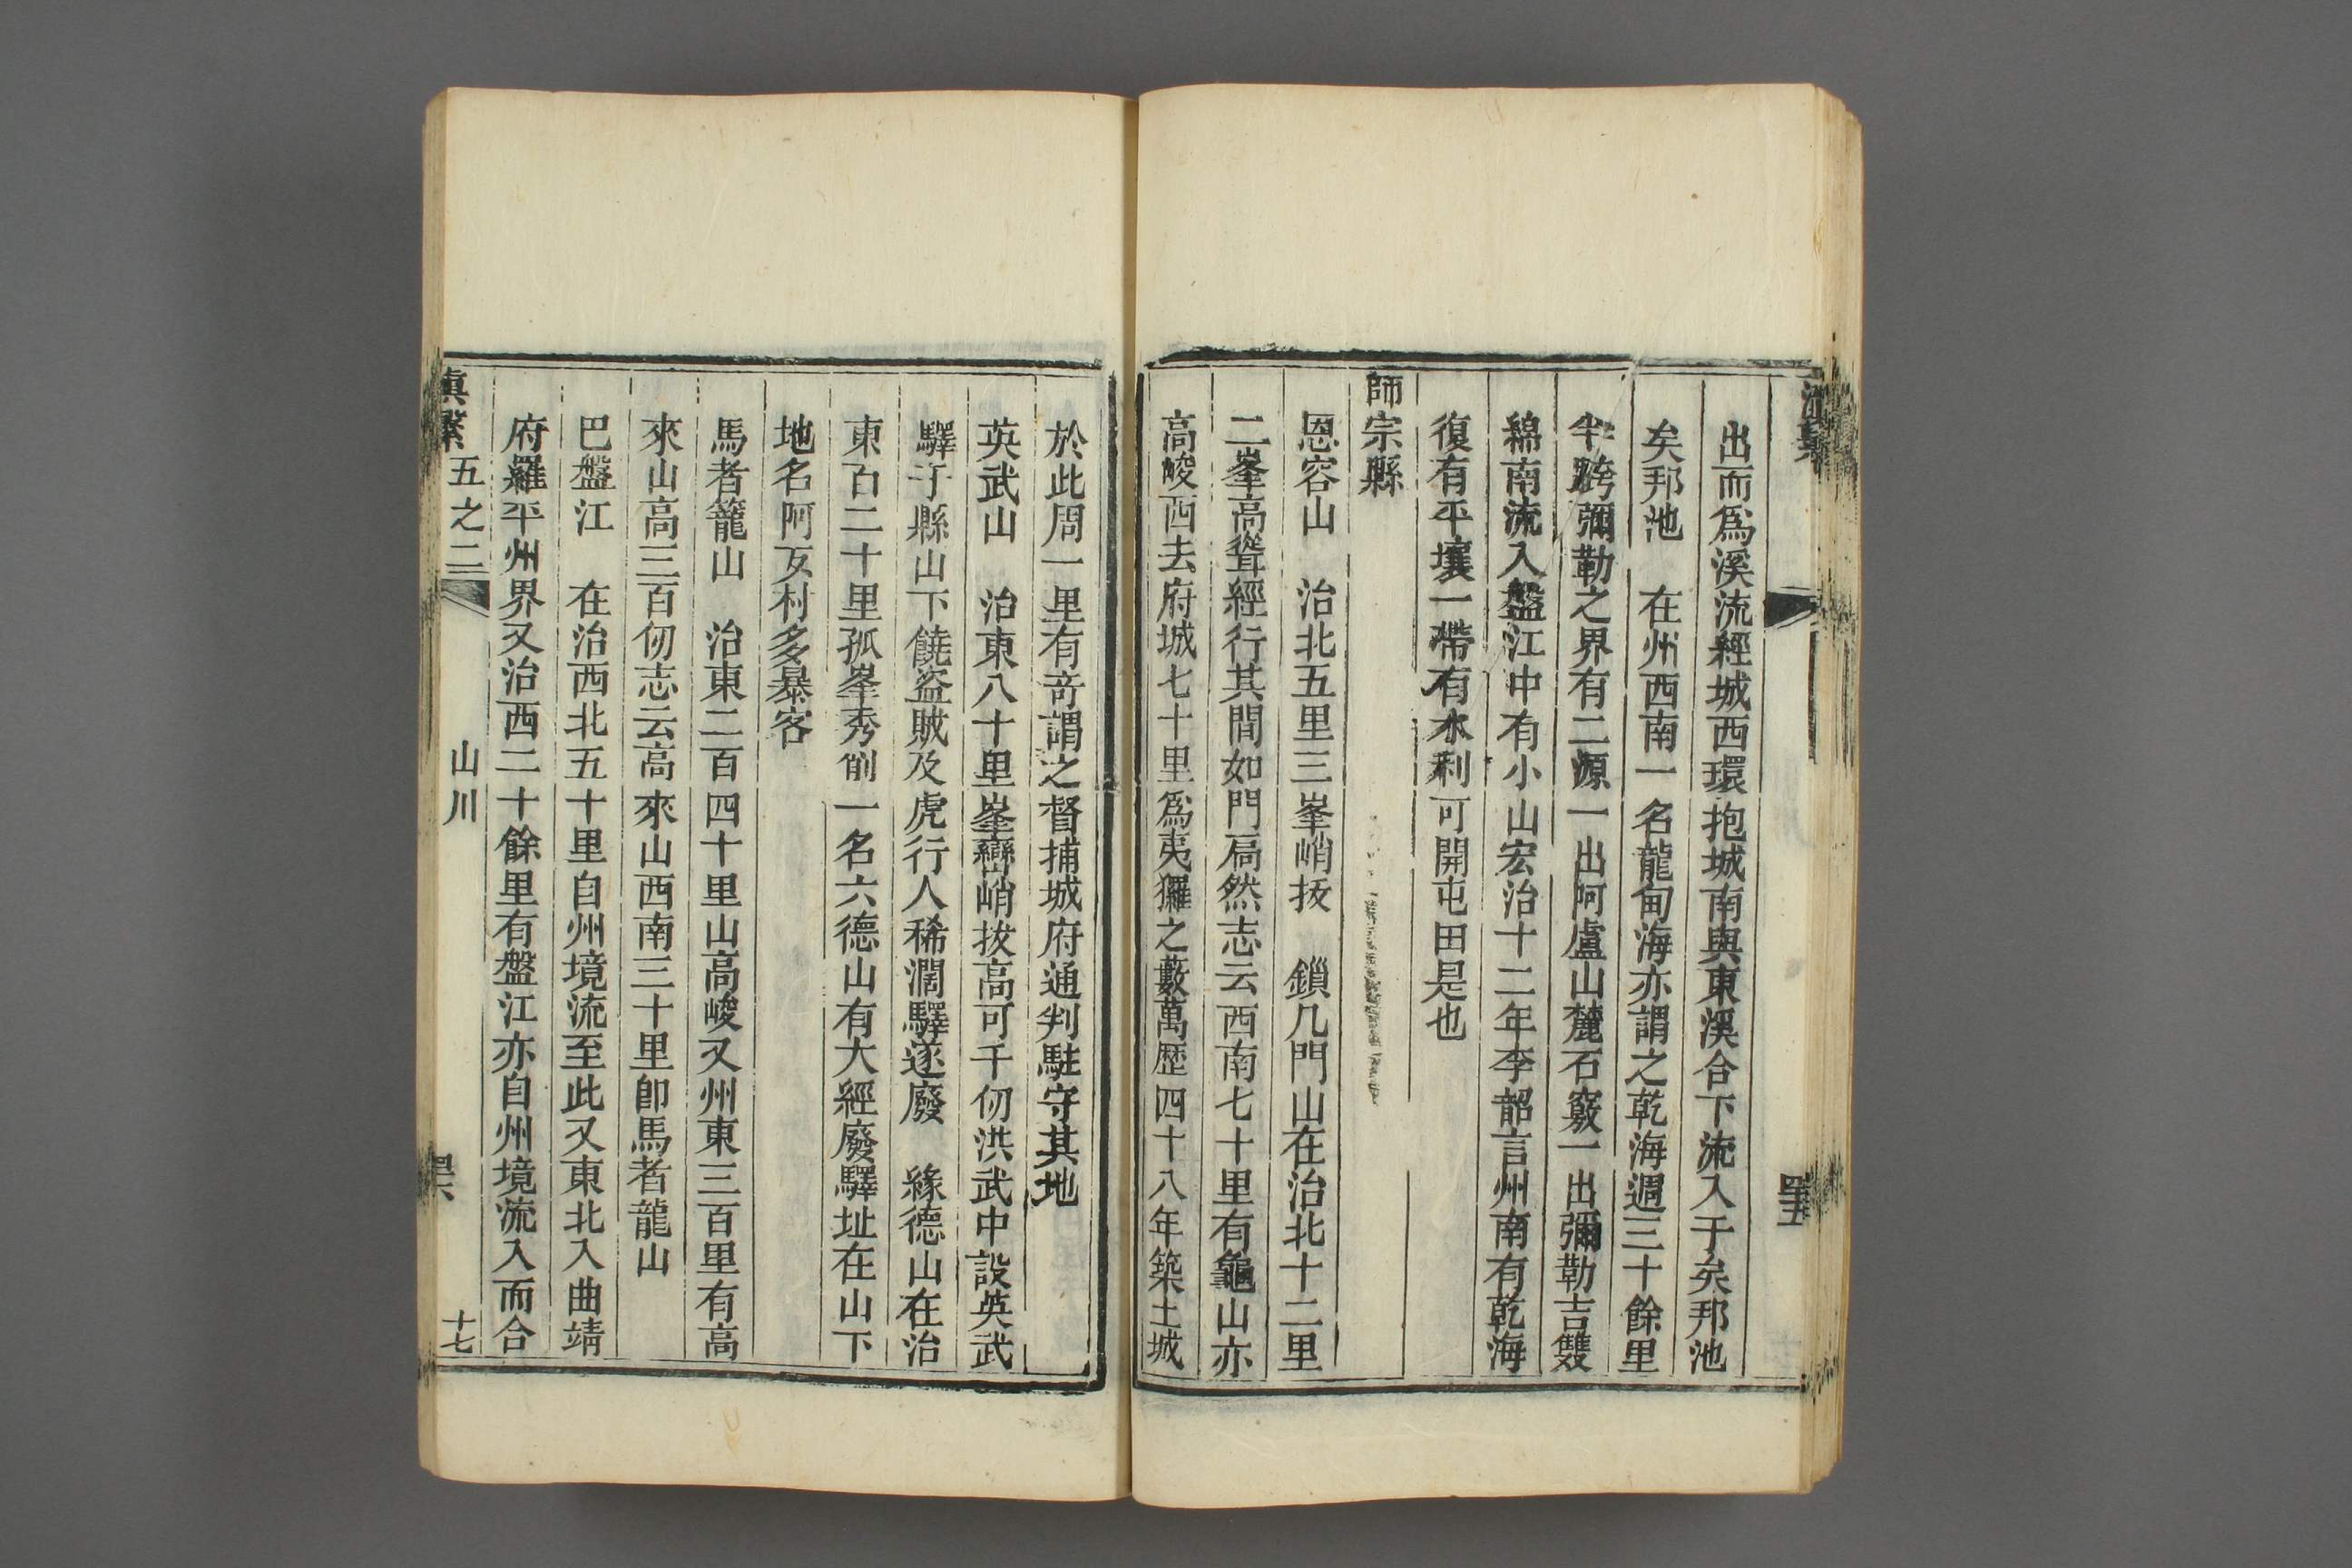 出而爲溪流經城西環抱城南與東溪合下流入于矣邦池
矣邦池　在州西南一名龍甸海亦謂之乾海週三十餘里
半跨彌勒之界有二源一出阿盧山麓石竅一出彌勒吉雙
綿南流入盤江中有小山宏治十二年李韶言州南有乾海
復有平壤一帶有水利可開屯田是也
師宗縣
恩容山　治北五里三峯峭拔　鎖几門山在治北十二里
二峯高聳經行其間如門扃然志云西南七十里有龜山亦
高峻西去府城七十里爲夷玀之藪萬歷四十八年築土城
於此周一里有奇謂之督捕城府通判駐守其地
英武山　治東八十里峯巒峭拔高可千仞洪武中設英武
驛于縣山下饒盜賊及虎行人稀濶驛遂廢　緣德山在治
東百二十里孤峯秀削一名六德山有大經廢驛址在山下
地名阿亥村多暴客
馬者籠山　治東二百四十里山高峻又州東三百里有高
來山高三百仞志云高來山西南三十里卽馬者龍山
巴盤江　在治西北五十里自州境流至此又東北入曲靖
府羅平州界又治西二十餘里有盤江亦自州境流入而合
滇繫　五之二　山川　十七